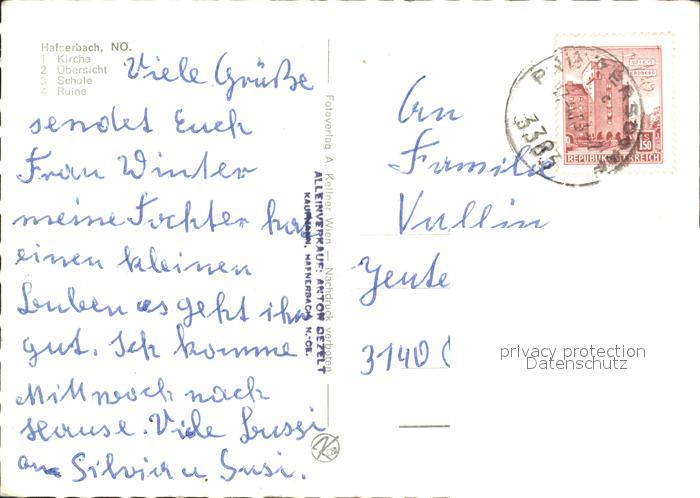 Hafnerbach, NÖ.
1 Kirche
2 Übersicht
3 Schule
4 Ruine
Viele Grüße
sendet Euch
Frau Winter
meine Tochter hat
einen kleinen
Buben es geht ihr
gut. Ich komme
Mittwoch nach
Hause. Viele Bussi
an Silvia u Susi.
Fotoverlag A. Kellner, Wien — Nachdruck verboten
ALLEINVERKAUF: ANTON DEZELT
KAUFMANN, HAFNERBACH, N.-OE.
An
Familie
Vullin
3140
WIEN
ERDBERG
S 1.50
REPUBLIK ÖSTERREICH
3385
privacy protection
Datenschutz